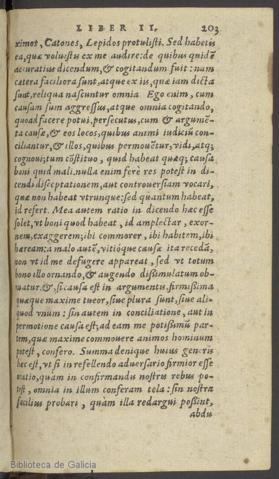 LIBER II. 203
ximos, Catones, Lepidos protulisti. Sed habetis
ea, quæ voluistis ex me audire: de quibus quidē
accuratius dicendum, & cogitandum fuit: nam
cetera faciliora sunt, atque ex iis, quæ iam dicta
sunt, reliqua nascuntur omnia. Ego enim, cum
causam sum aggressus, atque omnia cogitando,
quoad facere potui, persecutus, cum & argumē-
ta causæ, & eos locos, quibus animi iudicũ con-
ciliantur, & illos, quibus permouētur, vidi, atq;
cognoui; tum cōstituo, quid habeat quæq; causa
boni quid mali. nulla enim ferè res potest in di-
cendi disceptationem, aut controuersiam vocari,
quæ non habeat vtrunque: sed quantum habeat,
id refert. Mea autem ratio in dicendo hæc esse
solet, vt boni quod habeat, id amplectar, exor-
nem, exaggerem; ibi commorer, ibi habitem, ibi
hæream: a malo autē, vitióque causæ ita recedā,
non vt id me defugere appareat, sed vt totum
bono illo ornando, & augendo dissimulatum ob-
ruatur. & si causa est in argumentis, firmissima
quæque maxime tueor, siue plura sunt, siue ali-
quod vnum: sin autem in conciliatione, aut in
permotione causa est; ad eam me potissimũ par-
tem, quæ maxime commouere animos hominum
potest, confero. Summa denique huius generis
hæc est, vt si in refellendo aduersario firmior esse
oratio, quàm in confirmandis nostris rebus po-
test, omnia in illum conferam tela: sin nostra
facilius probari, quàm illa redargui possint,
abdu
Biblioteca de Galicia